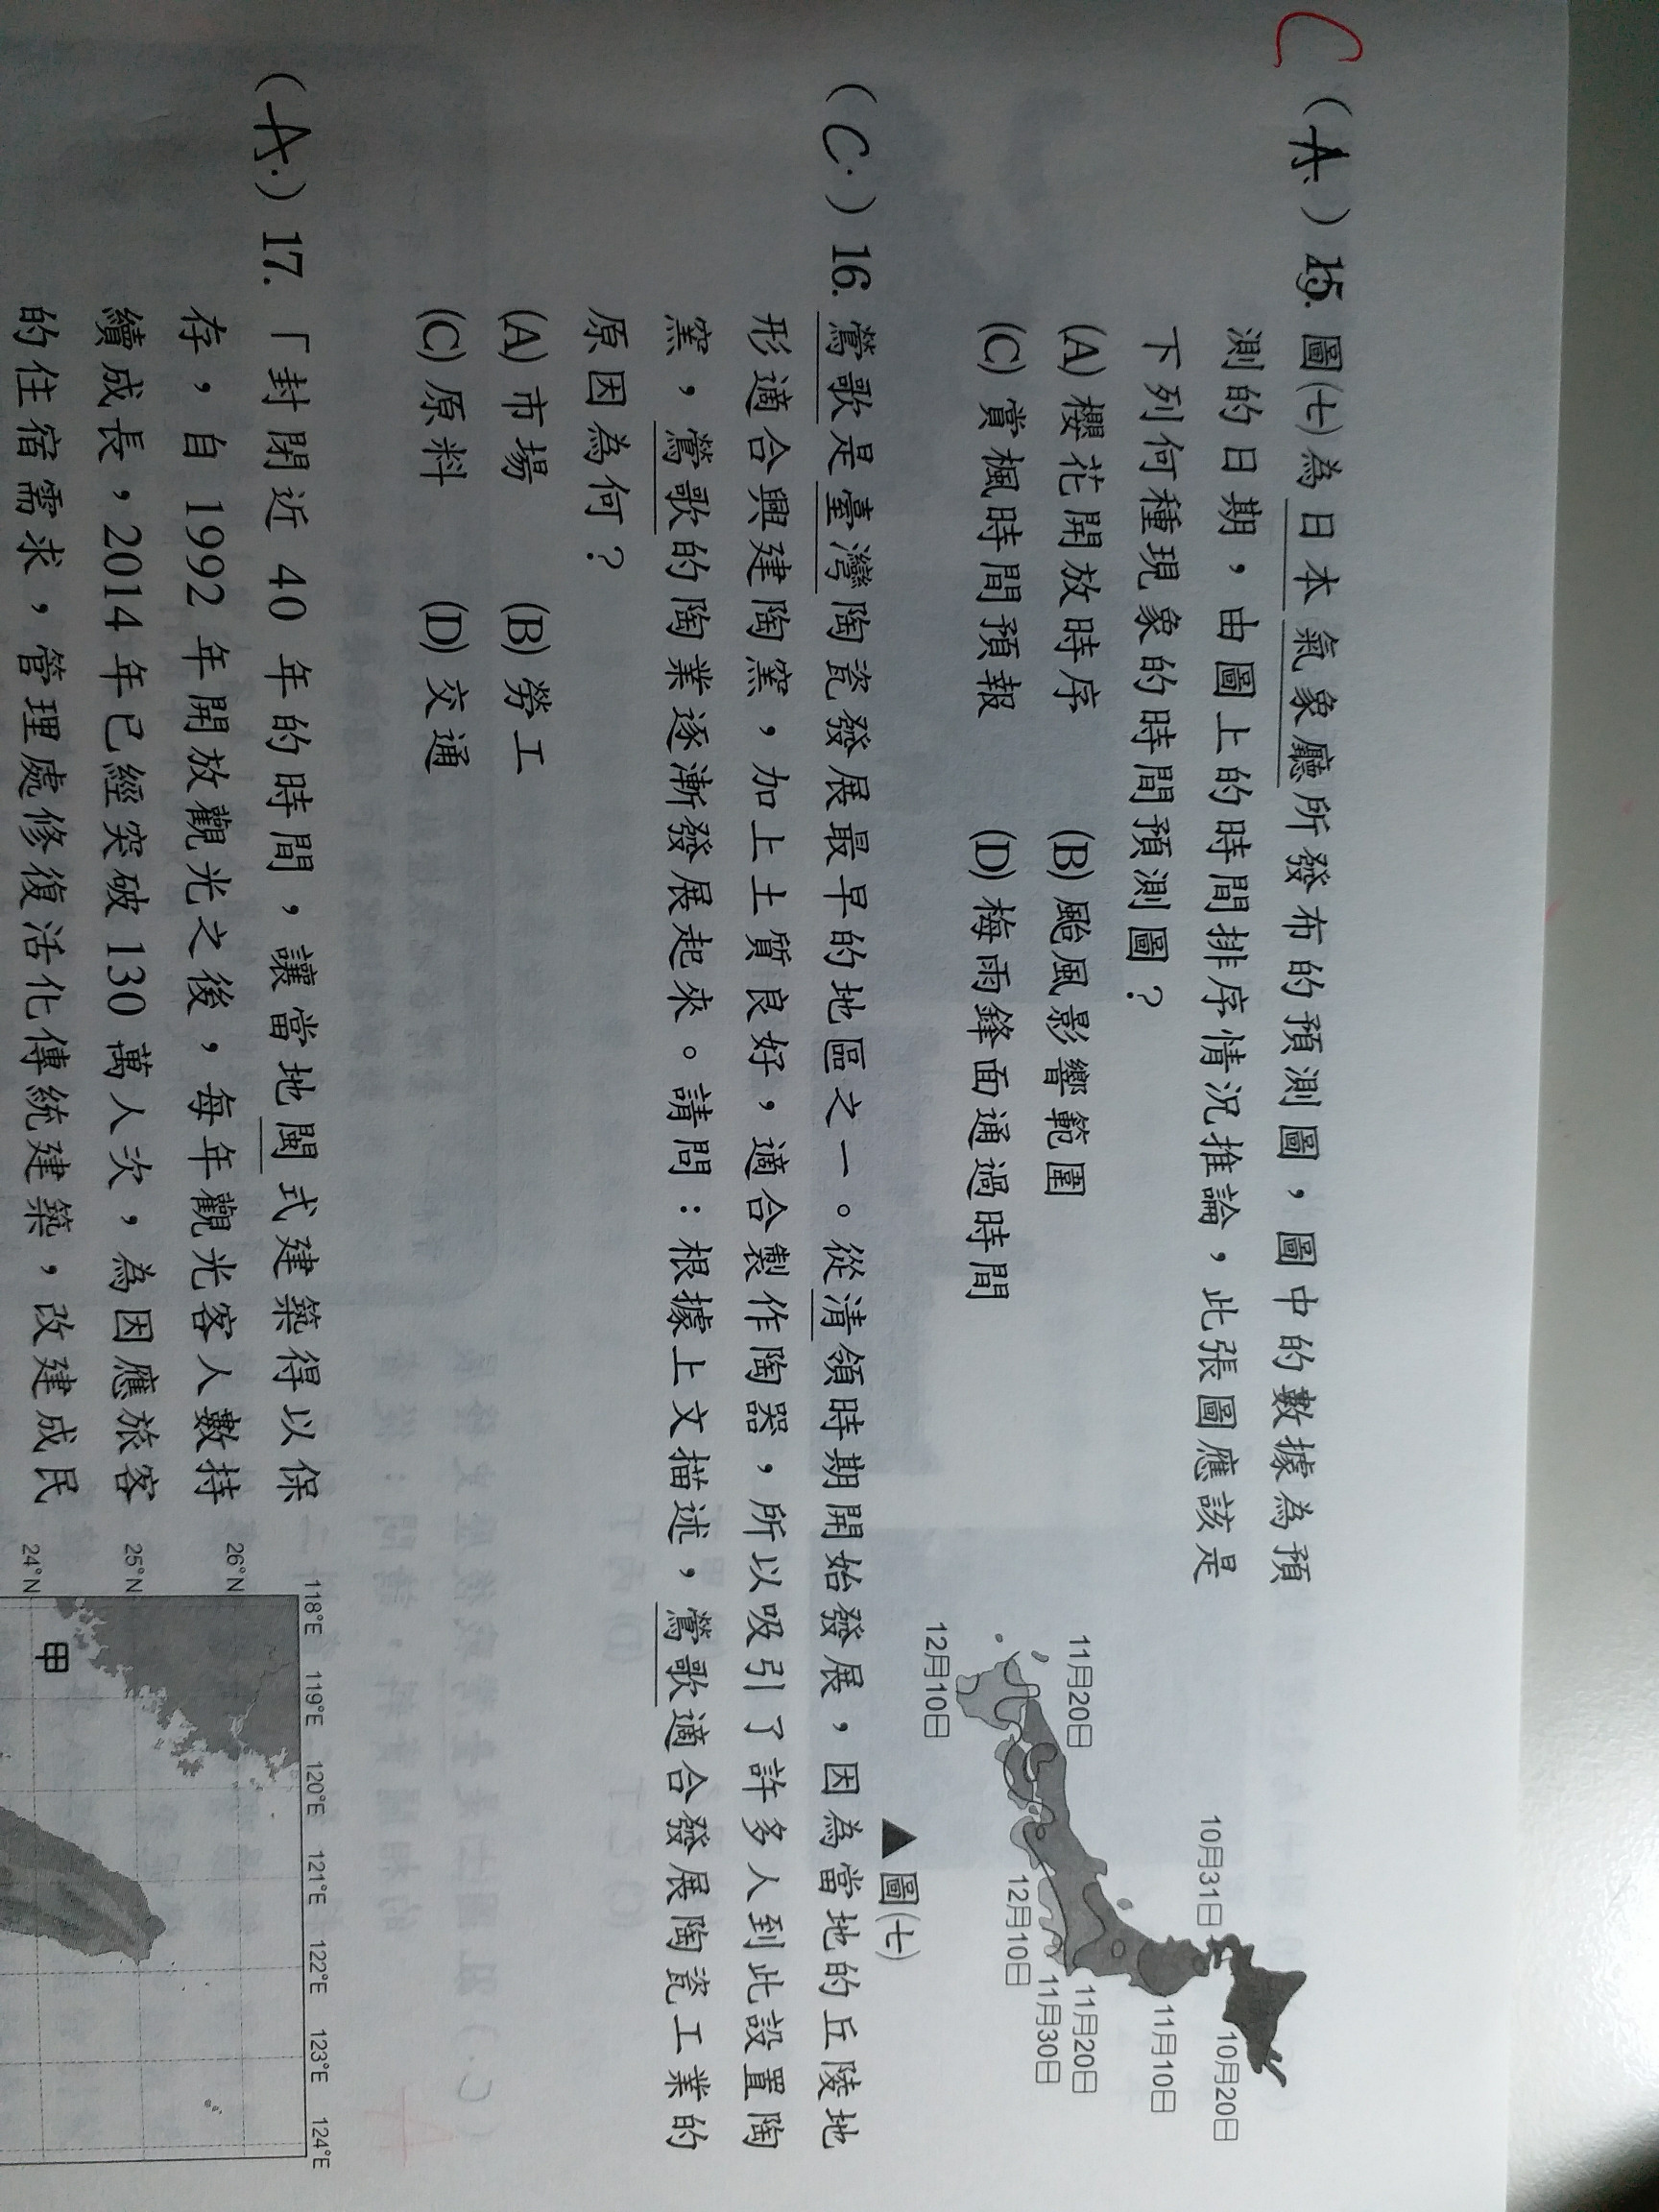 C
(A.) 15. 圖(七)為日本氣象廳所發布的預測圖，圖中的數據為預
測的日期，由圖上的時間排序情況推論，此張圖應該是
下列何種現象的時間預測圖？
(A) 櫻花開放時序 (B) 颱風影響範圍
(C) 賞楓時間預報 (D) 梅雨鋒面通過時間
10月31日
10月20日
11月10日
11月20日
11月20日
11月30日
12月10日
12月10日
▲圖(七)
(C.) 16. 鶯歌是臺灣陶瓷發展最早的地區之一。從清領時期開始發展，因為當地的丘陵地
形適合興建陶窯，加上土質良好，適合製作陶器，所以吸引了許多人到此設置陶
窯，鶯歌的陶業逐漸發展起來。請問：根據上文描述，鶯歌適合發展陶瓷工業的
原因為何？
(A) 市場 (B) 勞工
(C) 原料 (D) 交通
(A.) 17. 「封閉近 40 年的時間，讓當地閩式建築得以保
存，自 1992 年開放觀光之後，每年觀光客人數持
續成長，2014 年已經突破 130 萬人次，為因應旅客
的住宿需求，管理處修復活化傳統建築，改建成民
118°E 119°E 120°E 121°E 122°E 123°E 124°E
26°N
25°N
24°N
甲